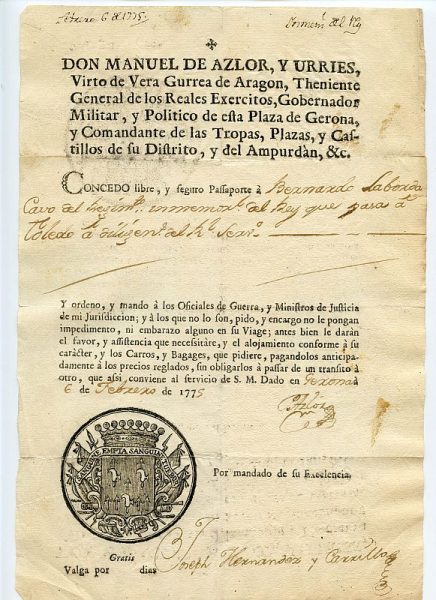 Febrero 6 de 1775
Inmem.l del Rey
DON MANUEL DE AZLOR, Y URRIES,
Virto de Vera Gurrea de Aragon, Theniente
General de los Reales Exercitos, Gobernador
Militar, y Politico de esta Plaza de Gerona,
y Comandante de las Tropas, Plazas, y Cas-
tillos de su Distrito, y del Ampurdàn, &c.
CONCEDO libre, y seguro Passaporte à Bernardo Laborda
Cavo del Regim.to inmemor.l del Rey que pasa á
Toledo á diligen.s del R.l Serv.o
Y ordeno, y mando à los Oficiales de Guerra, y Ministros de Justicia
de mi Jurisdiccion; y à los que no lo son, pido, y encargo no le pongan
impedimento, ni embarazo alguno en su Viage; antes bien le daràn
el favor, y assistencia que necesitàre, y el alojamiento conforme à su
caràcter, y los Carros, y Bagages, que pidiere, pagandolos anticipa-
damente à los precios reglados, sin obligarlos à passar de un transito à
otro, que assi conviene al servicio de S. M. Dado en Gerona à
6 de Febrero de 1775
Azlor
EMPTA SANGUI
Por mandado de su Excelencia.
Gratis
Valga por dias
Joseph Hernandez y Carrillo